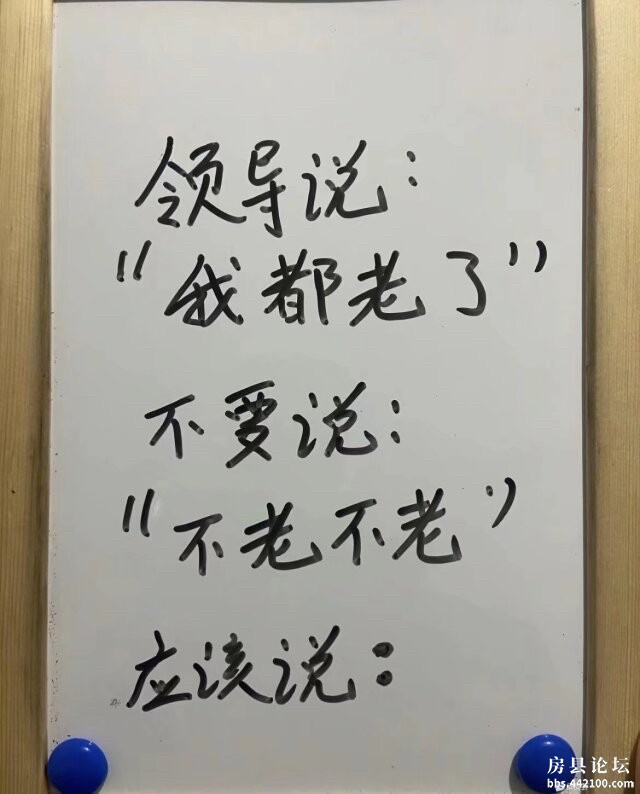 领导说：
“我都老了”
不要说：
“不老不老”
应该说：
房县论坛
bbs.442100.com